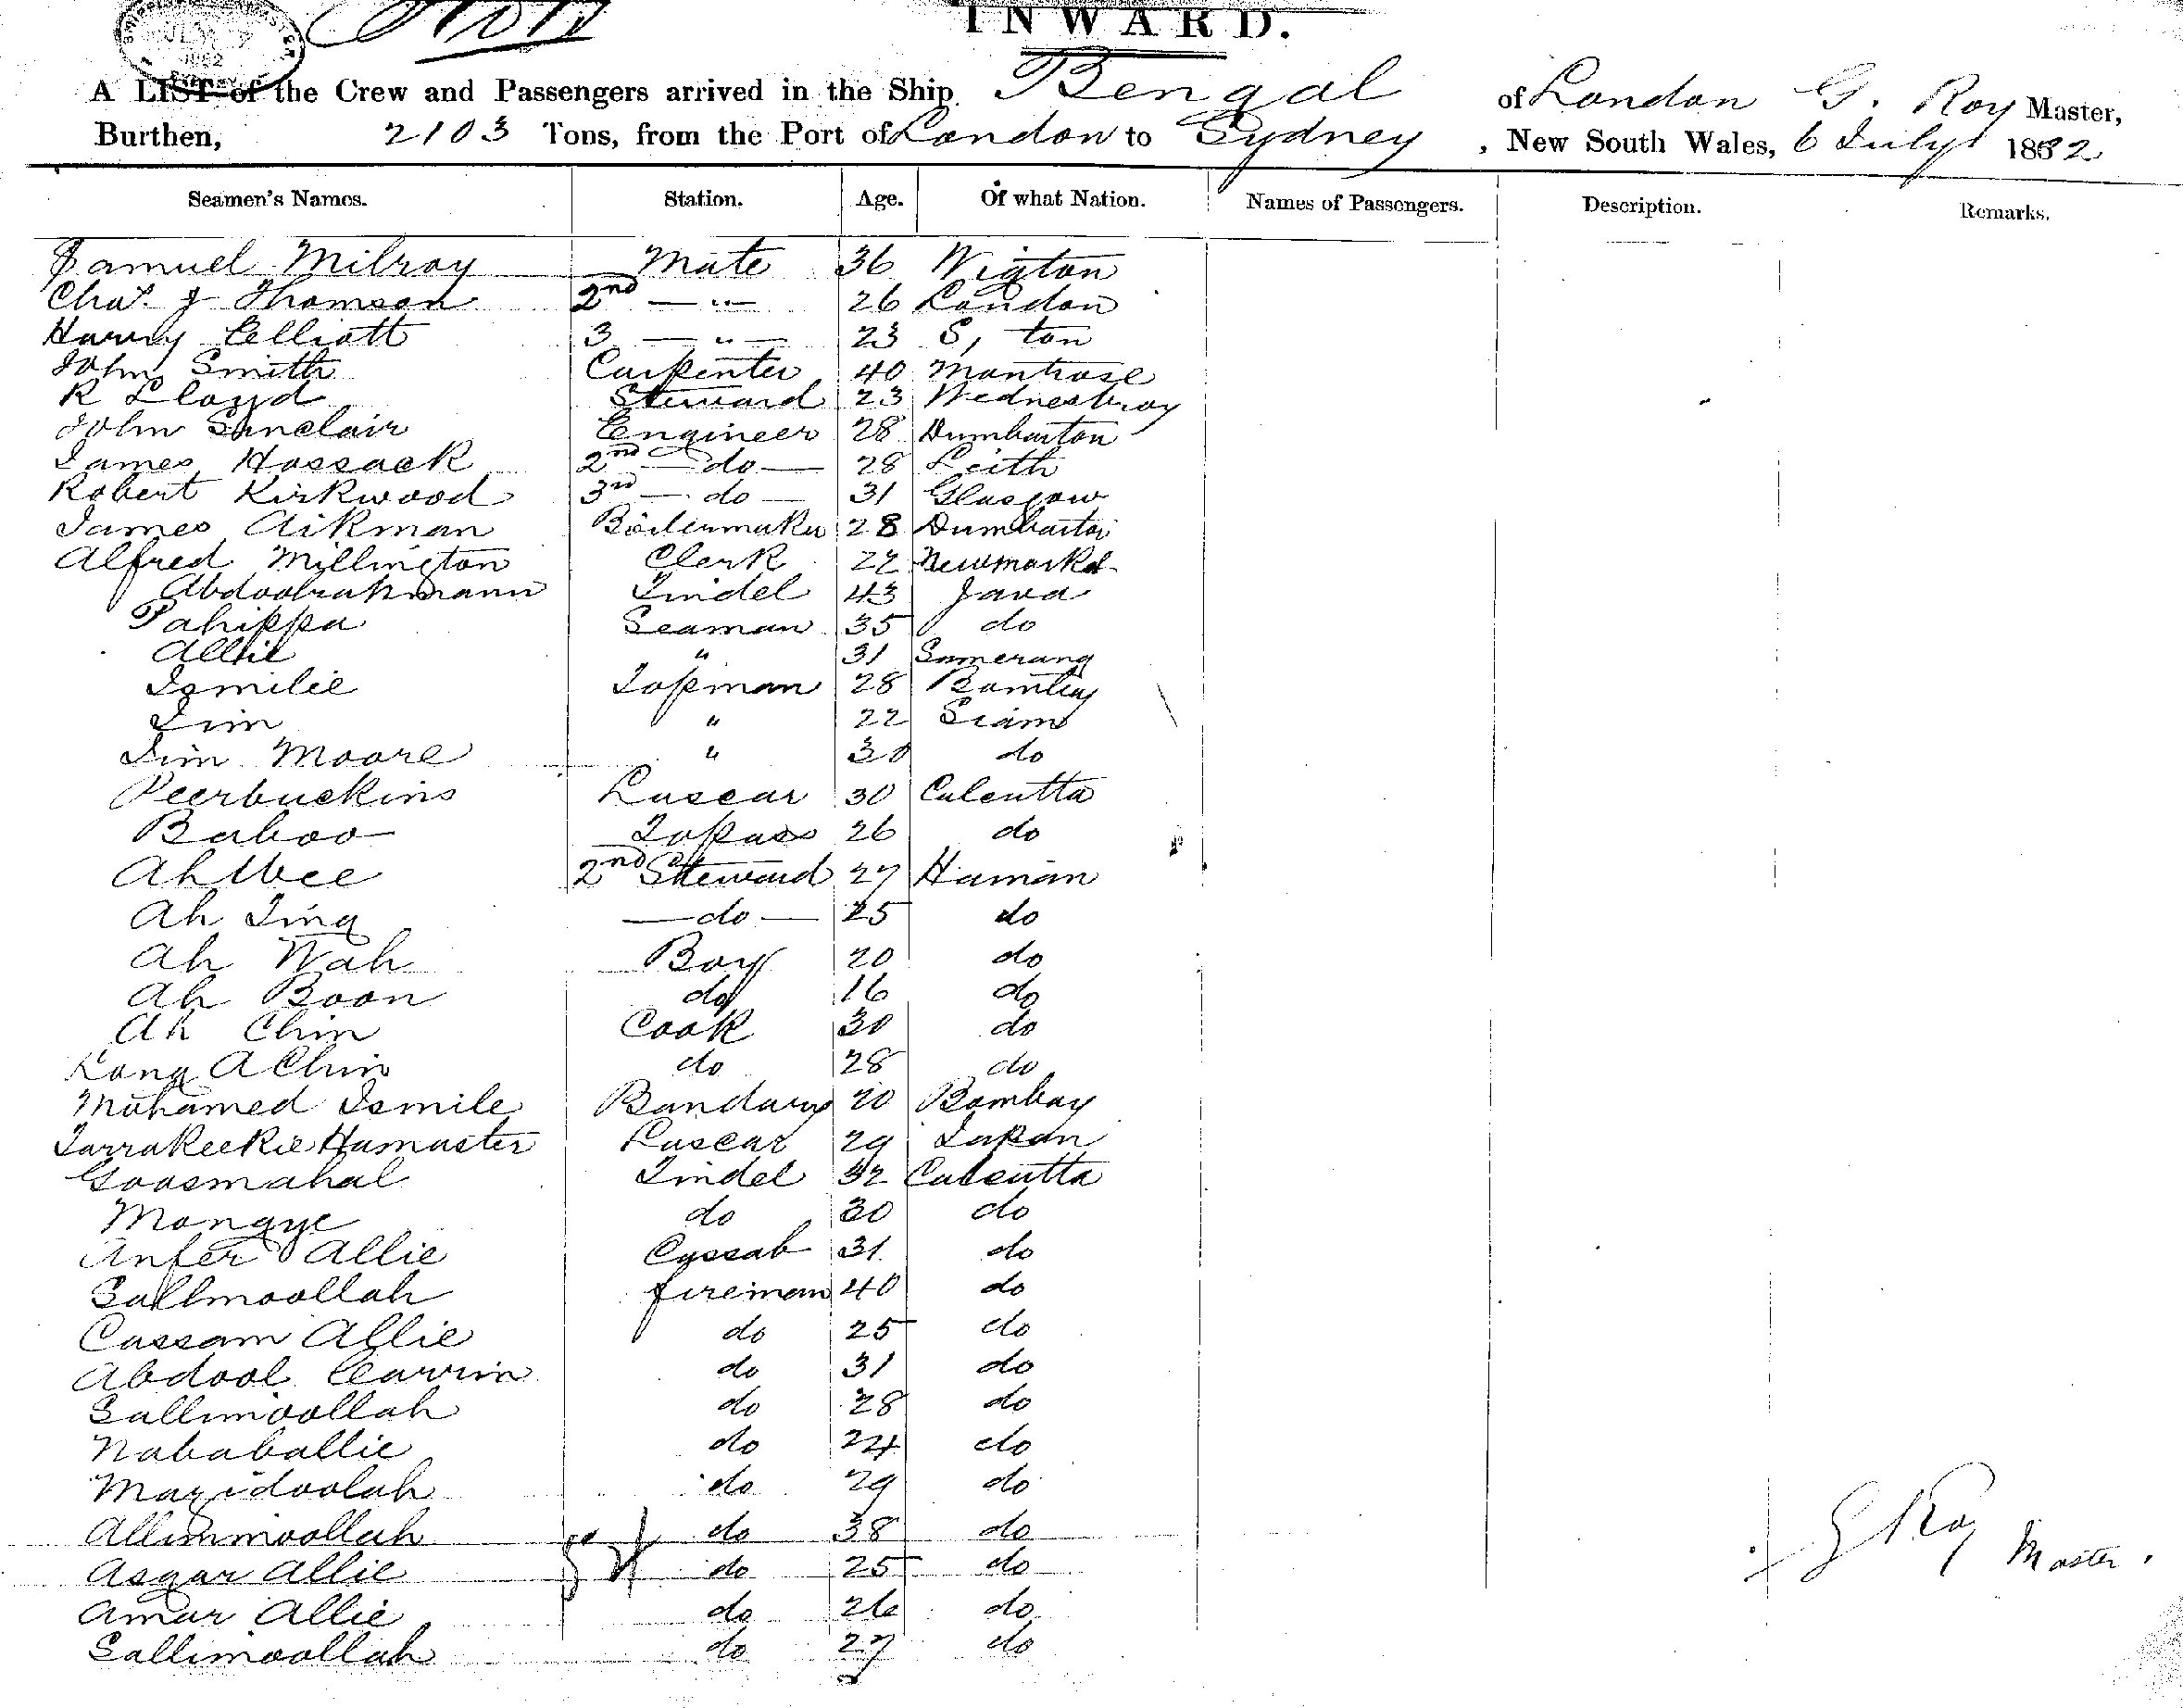 INWARD.
A LIST of the Crew and Passengers arrived in the Ship Bengal of London G. Roy Master,
Burthen, 2103 Tons, from the Port of London to Sydney, New South Wales, 6 July 1882
Seamen's Names. Station. Age. Of what Nation. Names of Passengers. Description. Remarks.
Samuel Milroy Mate 36 Wigton
Chas. J Thomson 2nd — " — 26 London
Harry Elliott 3 — " — 23 S, ton
John Smith Carpenter 40 Montrose
R Lloyd Steward 23 Wednesbury
John Sinclair Engineer 28 Dumbarton
James Hossack 2nd — do — 28 Leith
Robert Kirkwood 3rd — do — 31 Glasgow
James Aikman Boilermaker 28 Dumbarton
Alfred Millington Clerk 22 Newmarket
Abdoolrahmann Tindel 43 Java
Pahippa Seaman 35 do
Allie " 31 Samerang
Ismilie Topman 28 Bombay
Sim " 22 Siam
Sim Moore " 30 do
Peerbuckins Lascar 30 Calcutta
Baboo Topass 26 do
Ah Wee 2nd Steward 27 Hainan
Ah Ting — do — 25 do
Ah Wah Boy 20 do
Ah Boon do 16 do
Ah Chin Cook 30 do
Kong A Chin do 28 do
Mahamed Ismile Bandary 20 Bombay
Tarrakeekie Hamaster Lascar 29 Japan
Goosmahal Tindel 32 Calcutta
Mongye do 30 do
Anfer Allie Cassab 31 do
Sallimoollah fireman 40 do
Cassam Allie do 25 do
Abdool Carrim do 31 do
Sallimoollah do 28 do
Nababallie do 24 do
Mazidoolah do 29 do
Allimmoollah do 38 do
Asgar Allie do 25 do
Amar Allie do 26 do
Sallimoollah do 27 do
G Roy
Master.